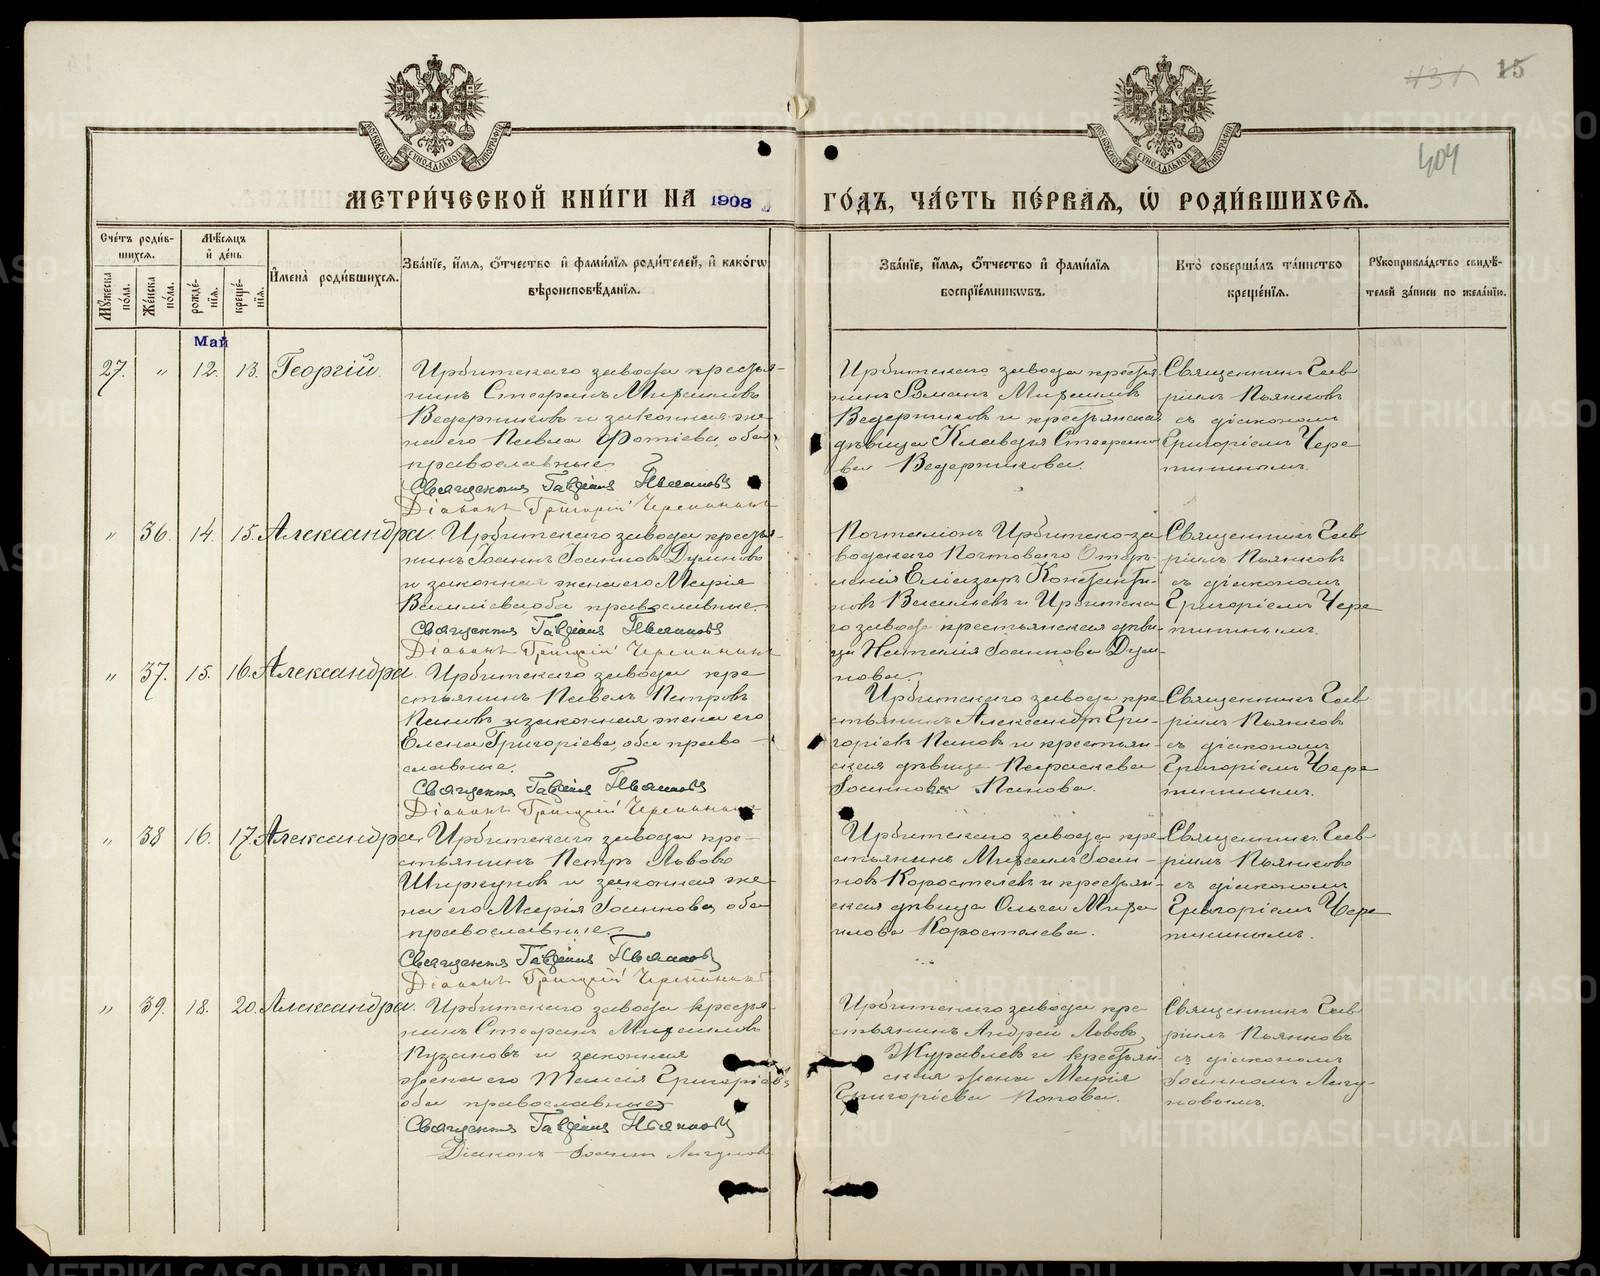 431 15
404
МОСКОВСКОЙ СѴНОДАЛЬНОЙ ТИПОГРАФІИ
МОСКОВСКОЙ СѴНОДАЛЬНОЙ ТИПОГРАФІИ
МЕТРИ́ЧЕСКОЙ КНИ́ГИ НА 1908 ГО́ДЪ, ЧА́СТЬ ПЕ́РВАѦ, Ѡ҆ РОДИ́ВШИХСѦ.
Сче́тъ роди́в-
шихсѧ.
Мꙋ́жеска по́ла.
Же́нска по́ла.
Мѣ́сѧцъ
и҆ де́нь
рожде́-
нїѧ.
креще́-
нїѧ.
И҆мена̀ роди́вшихсѧ.
Зва́нїе, и҆́мѧ, ѻ҆́тчество и҆ фами́лїѧ роди́телей, и҆ како́гѡ
вѣроисповѣ́данїѧ.
Зва́нїе, и҆́мѧ, ѻ҆́тчество и҆ фами́лїѧ
воспрїе́мникѡвъ.
Кто̀ соверша́лъ та́инство
креще́нїѧ.
Рꙋкоприкла́дство свидѣ́-
телей за́писи по жела́нїю.
Май
27. " 12. 13. Георгій.
Ирбитскаго завода крестья-
нинъ Стефанъ Михаиловъ
Ведерниковъ и законная же-
на его Павла Фотіева, оба
православные
Священникъ Гавріилъ Пьянковъ
Діаконъ Григорій Черепанинъ
Ирбитскаго завода крестья-
нинъ Романъ Михаиловъ
Ведерниковъ и крестьянская
дѣвица Клавдія Стефано-
ва Ведерникова.
Священникъ Гав-
ріилъ Пьянковъ
съ діакономъ
Григоріемъ Чере-
" 36. 14. 15. Александра.
Ирбитскаго завода крестья-
нинъ Іоаннъ Іоанновъ Думновъ
и законная жена его Марія
Василіева, оба православные.
Священникъ Гавріилъ Пьянковъ
Діаконъ Григорій Черепанинъ
Почталіонъ Ирбитско-за-
водскаго Почтоваго Отдѣ-
ленія Еліазаръ Константи-
новъ Васильевъ и Ирбитска-
го завода крестьянская дѣви-
ца Наталія Іоаннова Дум-
нова.
Священникъ Гав-
ріилъ Пьянковъ
съ діакономъ
Григоріемъ Чере-
" 37. 15. 16. Александра.
Ирбитскаго завода кре-
стьянинъ Павелъ Петровъ
Пановъ и законная жена его
Елена Григоріева, оба право-
славные.
Священникъ Гавріилъ Пьянковъ
Діаконъ Григорій Черепанинъ
Ирбитскаго завода кре-
стьянинъ Александръ Гри-
горіевъ Пановъ и крестьян-
ская дѣвица Параскева
Іоаннова Панова.
Священникъ Гав-
ріилъ Пьянковъ
съ діакономъ
Григоріемъ Чере-
" 38 16. 17. Александра.
Ирбитскаго завода кре-
стьянинъ Петръ Львовъ
Ширкуновъ и законная же-
на его Марія Іоаннова, оба
православные
Священникъ Гавріилъ Пьянковъ
Діаконъ Григорій Черепанинъ
Ирбитскаго завода кре-
стьянинъ Михаилъ Іоан-
новъ Коростелевъ и крестьян-
ская дѣвица Ольга Миха-
илова Коростелева.
Священникъ Гав-
ріилъ Пьянковъ
съ діакономъ
Григоріемъ Чере-
" 39. 18. 20. Александра.
Ирбитскаго завода крестья-
нинъ Стефанъ Михаиловъ
Пузановъ и законная
жена его Таисія Григоріева
оба православные
Священникъ Гавріилъ Пьянковъ
Діаконъ Іоаннъ Лагуновъ
Ирбитскаго завода кре-
стьянинъ Андрей Львовъ
Журавлевъ и крестьян-
ская жена Марія
Григоріева Попова.
Священникъ Гав-
ріилъ Пьянковъ
съ діакономъ
Іоанномъ Лагу-
новымъ.
METRIKI.GASO-URAL.RU